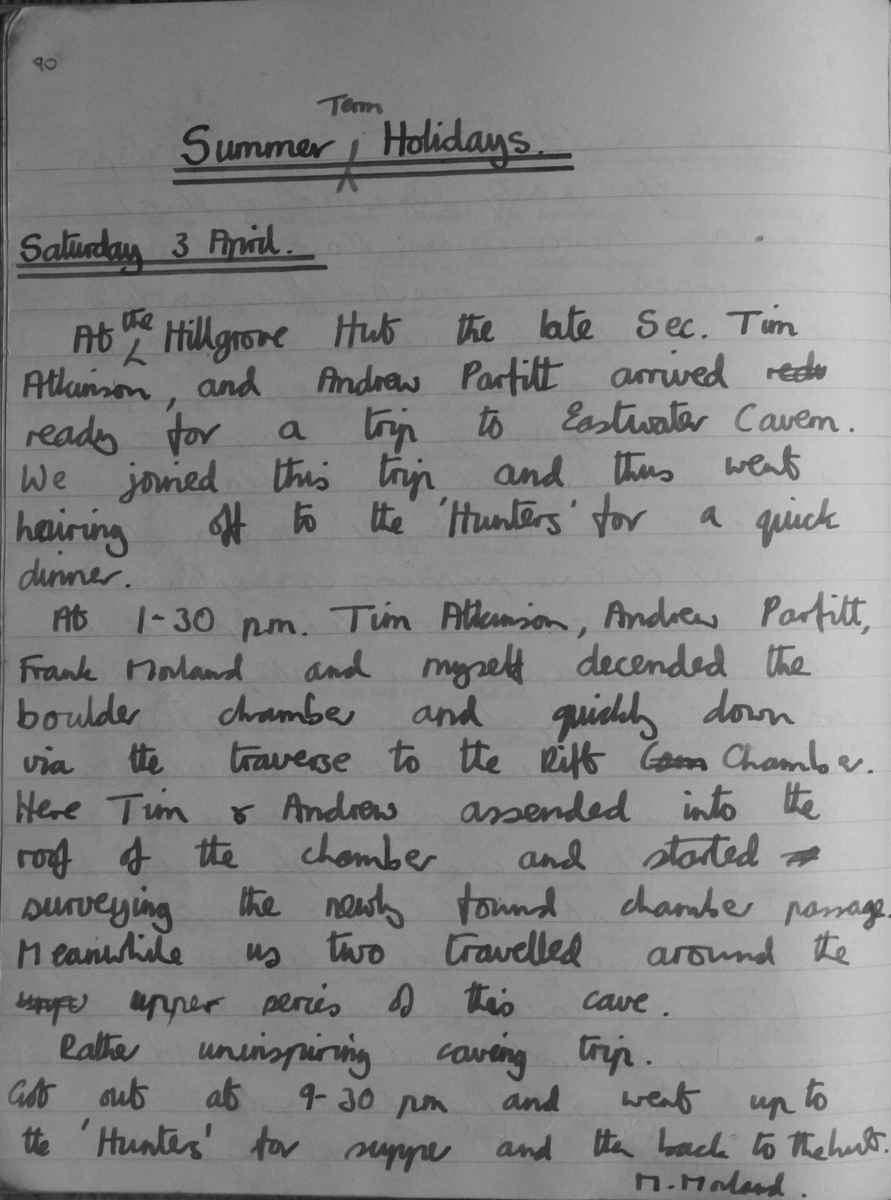 90
Term
Summer Holidays.
Saturday 3 April.
At the Hillgrove Hut the late Sec. Tim
Atkinson, and Andrew Parfitt arrived redu
ready for a trip to Eastwater Cavern.
We joined this trip and thus went
hairing off to the 'Hunters' for a quick
dinner.
At 1-30 pm. Tim Atkinson, Andrew Parfitt,
Frank Morland and myself decended the
boulder chamber and quickly down
via the traverse to the Rift Cham Chamber.
Here Tim & Andrew assended into the
roof of the chamber and started
surveying the newly found chamber passage.
Meanwhile us two travelled around the
upper series of this cave.
Rather uninspiring caving trip.
Got out at 9-30 pm and went up to
the 'Hunters' for supper and then back to the hut.
M. Morland.